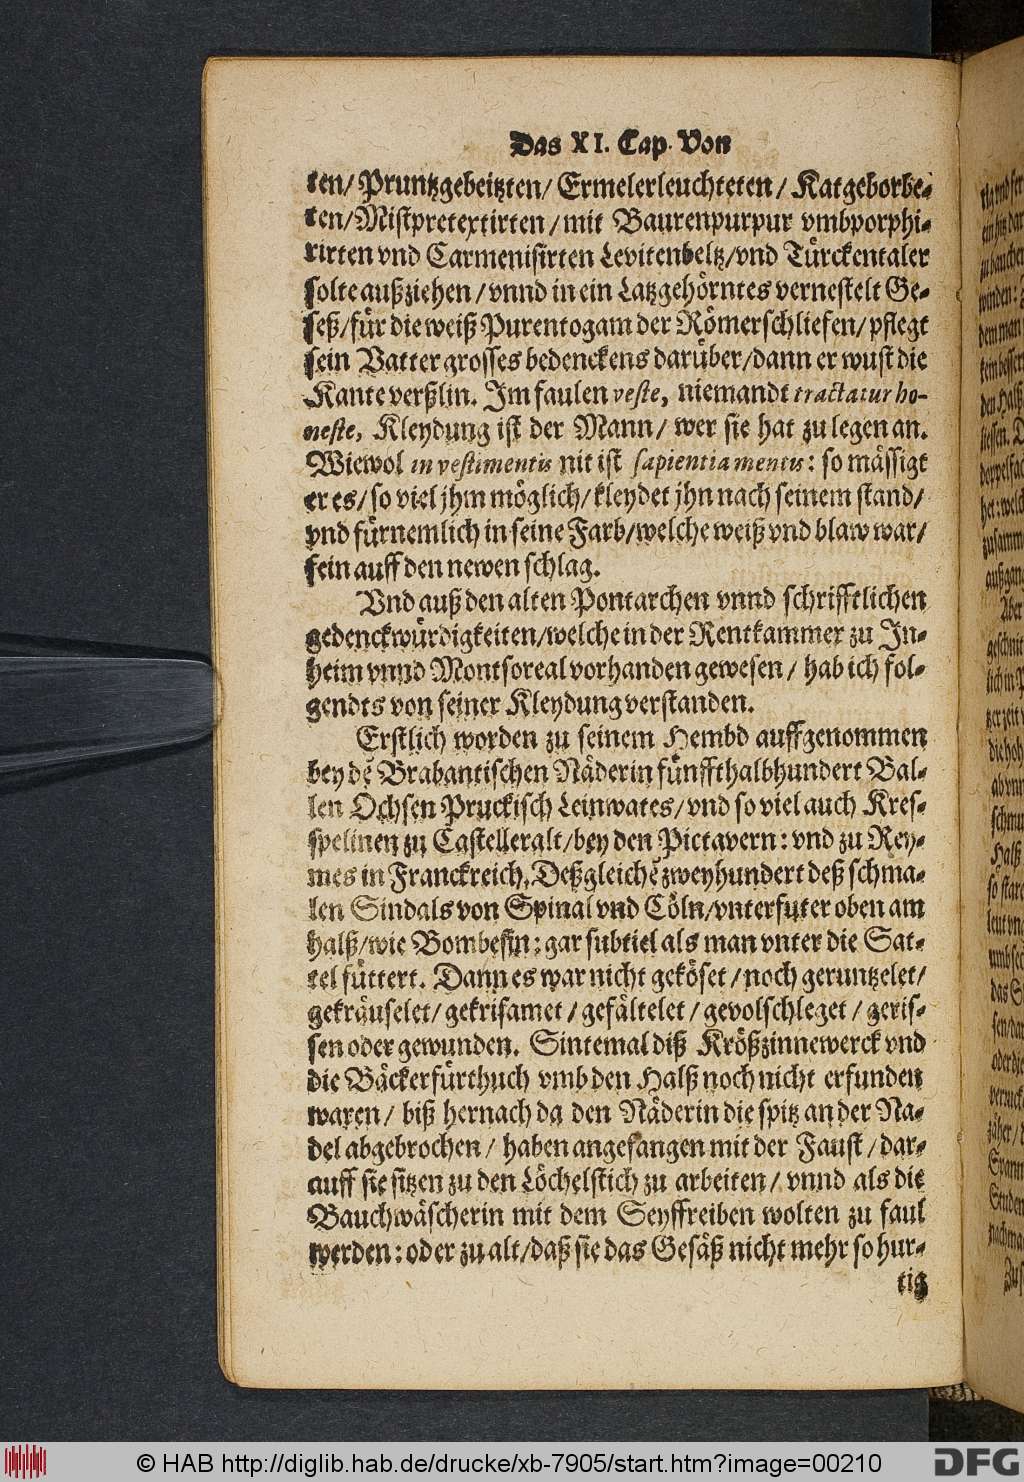 Das XI. Cap. Von
ten/ Pruntzgebeitzten/ Ermelerleuchteten/ Katgeborbe-
ten/Mistpretextirten/mit Baurenpurpur vmbporphi-
rirten vnd Carmenisirten Levitenbeltz/vnd Türckentaler
solte außziehen/vnnd in ein Latzgehörntes vernestelt Ge-
seß/für die weiß Purentogam der Römer schliefen/pflegt
sein Vatter grosses bedenckens darüber/dann er wust die
Kante verßlin. Im faulen veste, niemandt tractatur ho-
neste, Kleydung ist der Mann/ wer sie hat zu legen an.
Wiewol in vestimentis nit ist sapientia mentis: so mässigt
er es/ so viel jhm möglich/kleydet jhn nach seinem stand/
vnd fürnemlich in seine Farb/welche weiß vnd blaw war/
fein auff den newen schlag.
Vnd auß den alten Pontarchen vnnd schrifftlichen
gedenckwürdigkeiten/welche in der Rentkammer zu In-
heim vnnd Montsoreal vorhanden gewesen/ hab ich fol-
gendts von seiner Kleydung verstanden.
Erstlich worden zu seinem Hembd auffgenommen
bey dẽ Brabantischen Näderin fünffthalbhundert Bal-
len Ochsen Pruckisch Leinwates/vnd so viel auch Kres-
spelinen zu Castelleralt/bey den Pictavern: vnd zu Rey-
mes in Franckreich, Deßgleichẽ zweyhundert deß schma-
len Sindals von Spinal vnd Cöln/vnterfuter oben am
halß/wie Bombesin: gar subtiel als man vnter die Sat-
tel füttert. Dann es war nicht geköset/noch geruntzelet/
gekräuselet/ gekrisamet/ gefältelet/ gevolschleget/ geris-
sen oder gewunden. Sintemal diß Krößzinnewerck vnd
die Bäckerfürthuch vmb den Halß noch nicht erfunden
waren/ biß hernach da den Näderin die spitz an der Na-
del abgebrochen/ haben angefangen mit der Faust/dar-
auff sie sitzen zu den Löchelstich zu arbeiten/ vnnd als die
Bauchwäscherin mit dem Seyffreiben wolten zu faul
werden: oder zu alt/daß sie das Gesäß nicht mehr so hur-
tig
© HAB http://diglib.hab.de/drucke/xb-7905/start.htm?image=00210
DFG